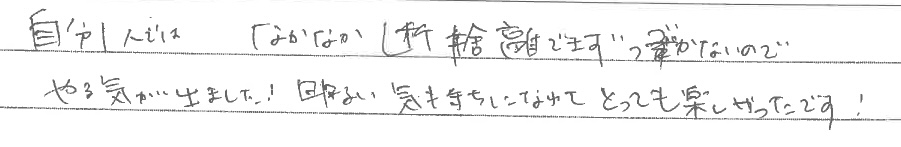 自分1人では なかなか断捨離できずかないので
やる気が出ました！明るい気持ちになれてとっても楽しかったです！